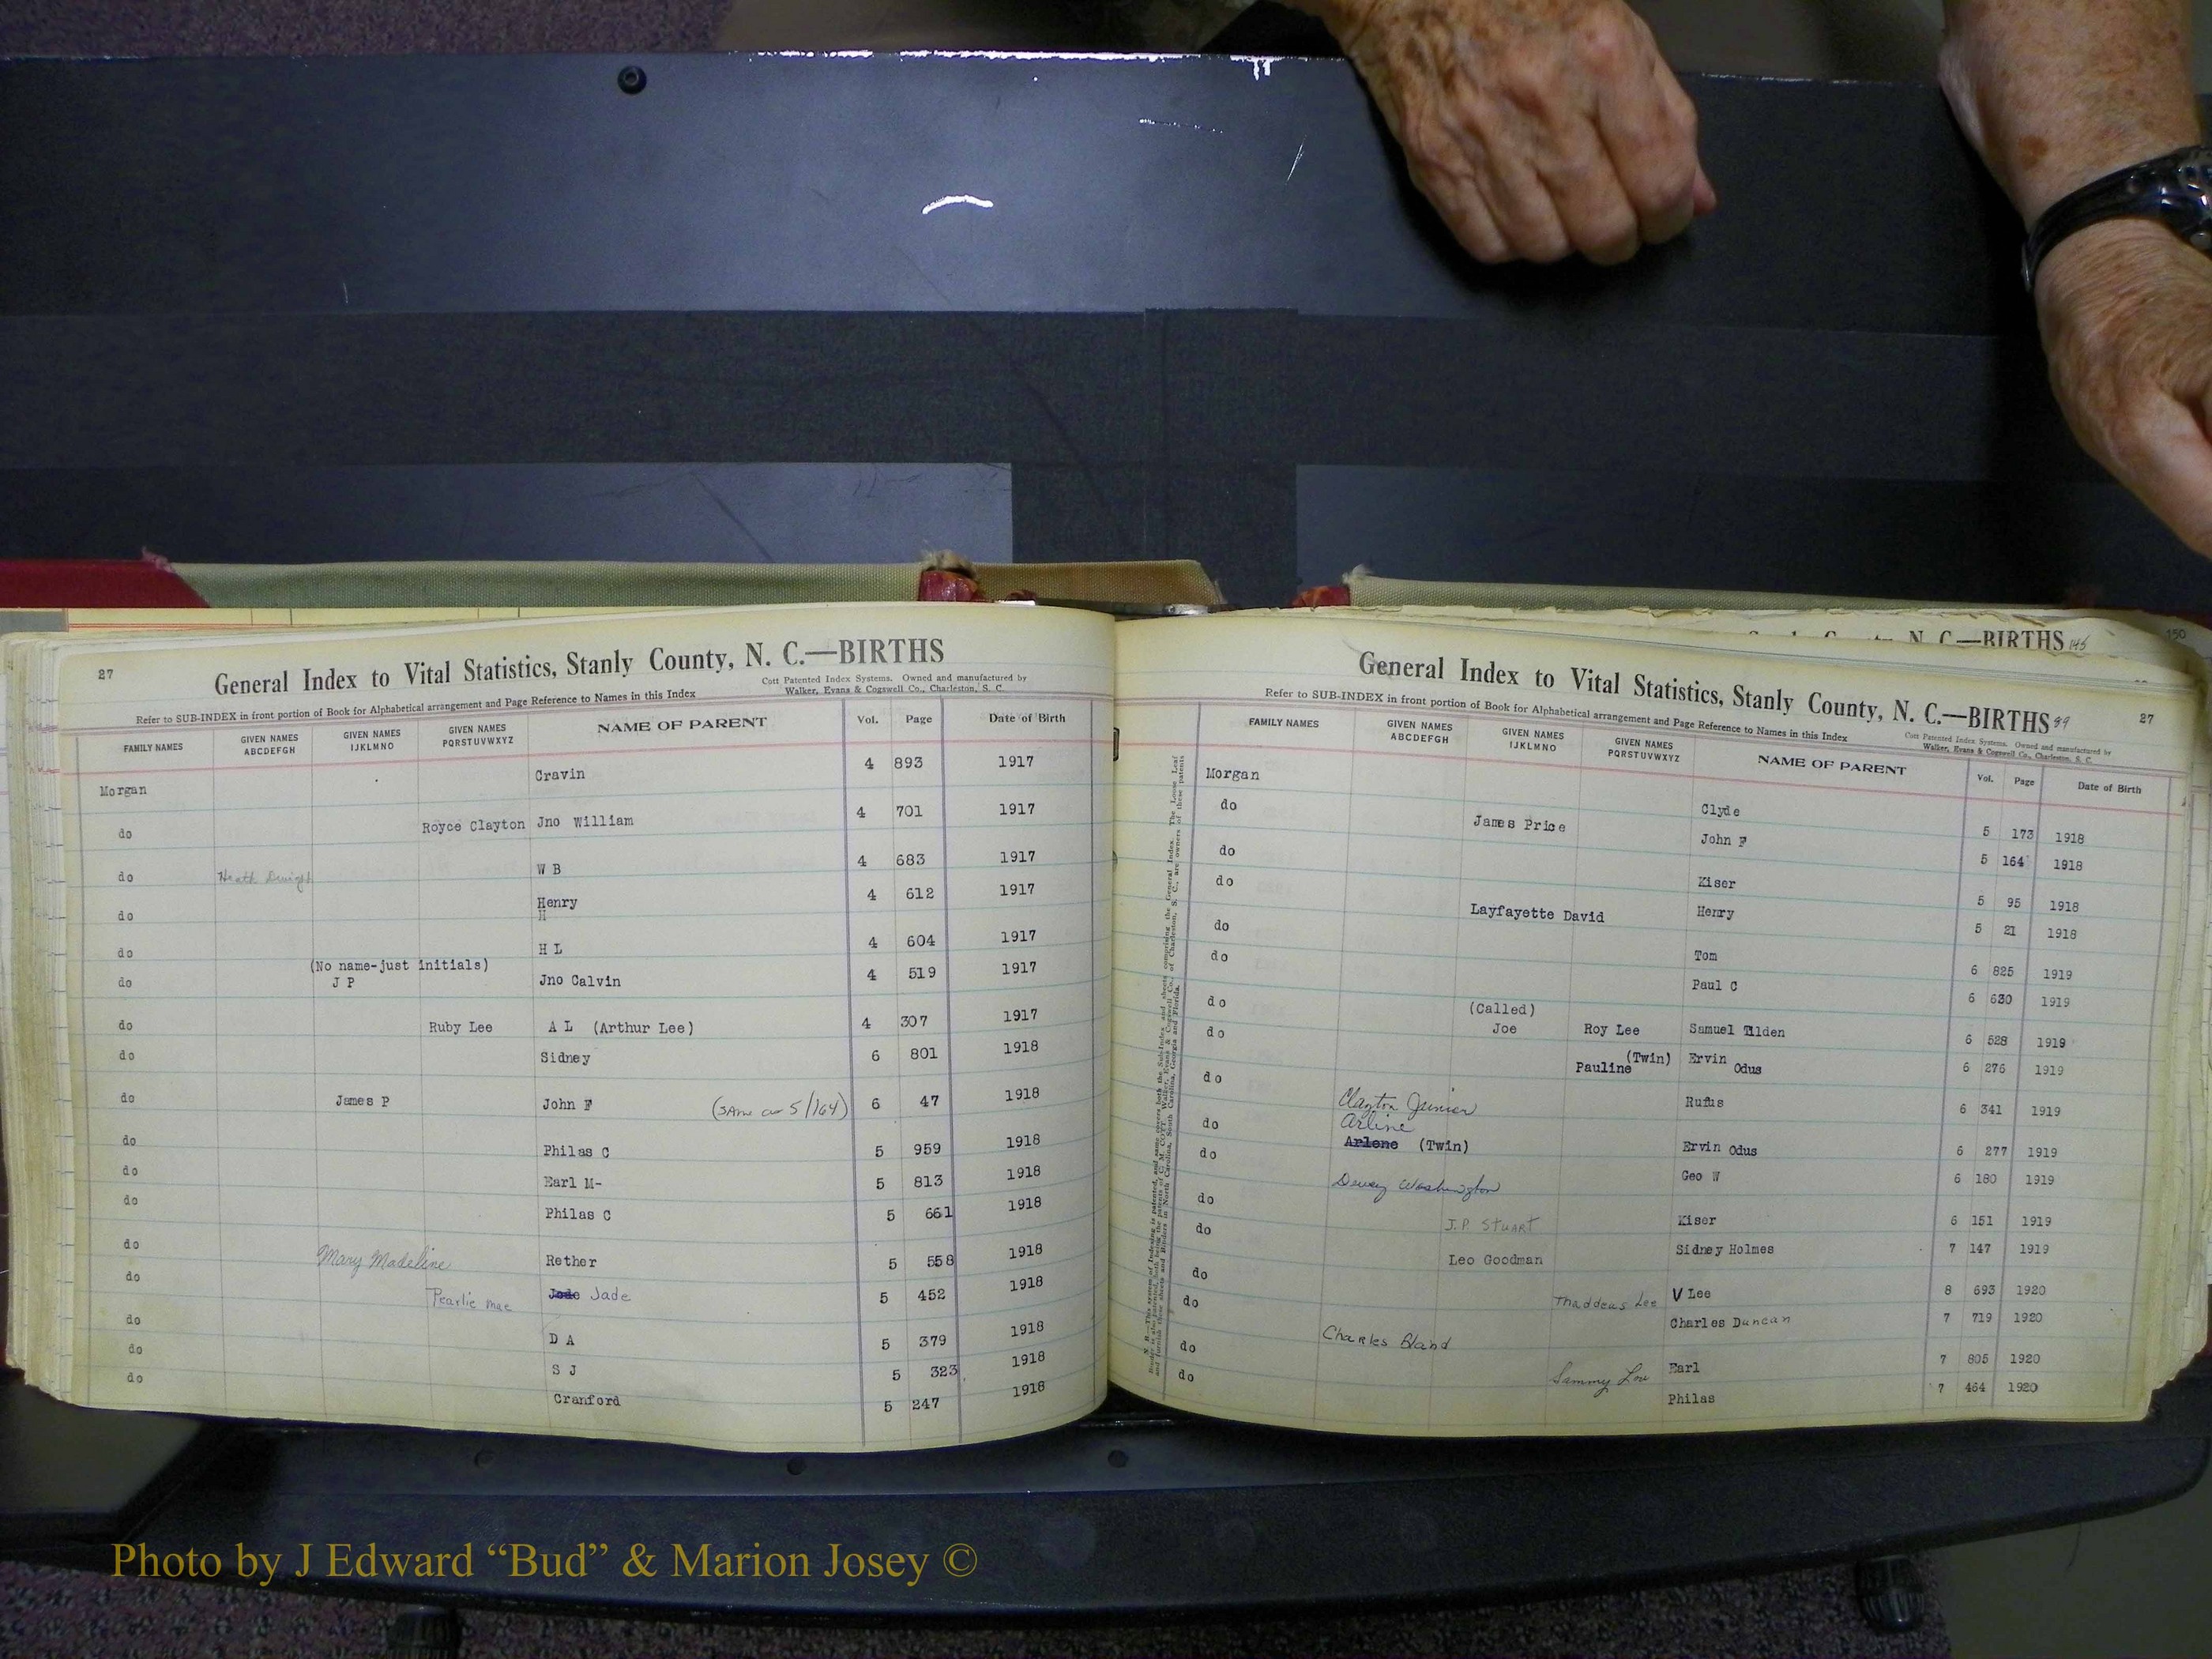 27
General Index to Vital Statistics, Stanly County, N. C.—BIRTHS
Cott Patented Index Systems. Owned and manufactured by
Walker, Evans & Cogswell Co., Charleston, S. C.
Refer to SUB-INDEX in front portion of Book for Alphabetical arrangement and Page Reference to Names in this Index
FAMILY NAMES GIVEN NAMES ABCDEFGH GIVEN NAMES IJKLMNO GIVEN NAMES PQRSTUVWXYZ NAME OF PARENT Vol. Page Date of Birth
Morgan Cravin 4 893 1917
do Royce Clayton Jno William 4 701 1917
do Heath Dwight W B 4 683 1917
do Henry 4 612 1917
H
do H L 4 604 1917
(No name-just initials)
do J P Jno Calvin 4 519 1917
do Ruby Lee A L (Arthur Lee) 4 307 1917
do Sidney 6 801 1918
do James P John F (SAme as 5/164) 6 47 1918
do Philas C 5 959 1918
do Earl M- 5 813 1918
do Philas C 5 661 1918
do Mary Madeline Rether 5 558 1918
do Pearlie mae Jade Jade 5 452 1918
do D A 5 379 1918
do S J 5 323 1918
do Cranford 5 247 1918
N. C.—BIRTHS 145
150
General Index to Vital Statistics, Stanly County, N. C.—BIRTHS 89
27
Refer to SUB-INDEX in front portion of Book for Alphabetical arrangement and Page Reference to Names in this Index
Cott Patented Index Systems. Owned and manufactured by
Walker, Evans & Cogswell Co., Charleston, S. C.
FAMILY NAMES GIVEN NAMES ABCDEFGH GIVEN NAMES IJKLMNO GIVEN NAMES PQRSTUVWXYZ NAME OF PARENT Vol. Page Date of Birth
Morgan Clyde 5 173 1918
do James Price John F 5 164 1918
do Kiser 5 95 1918
do Layfayette David Henry 5 21 1918
do Tom 6 825 1919
do Paul C 6 630 1919
(Called)
do Joe Roy Lee Samuel Tilden 6 528 1919
do Pauline (Twin) Ervin Odus 6 276 1919
do Clayton Junior Rufus 6 341 1919
Arline
do Arlene (Twin) Ervin Odus 6 277 1919
do Dewey Washington Geo W 6 180 1919
do J.P. STUART Kiser 6 151 1919
do Leo Goodman Sidney Holmes 7 147 1919
do Thaddeus Lee V Lee 8 693 1920
do Charles Duncan 7 719 1920
do Charles Bland Earl 7 805 1920
do Sammy Lou Philas 7 464 1920
Photo by J Edward “Bud” & Marion Josey ©